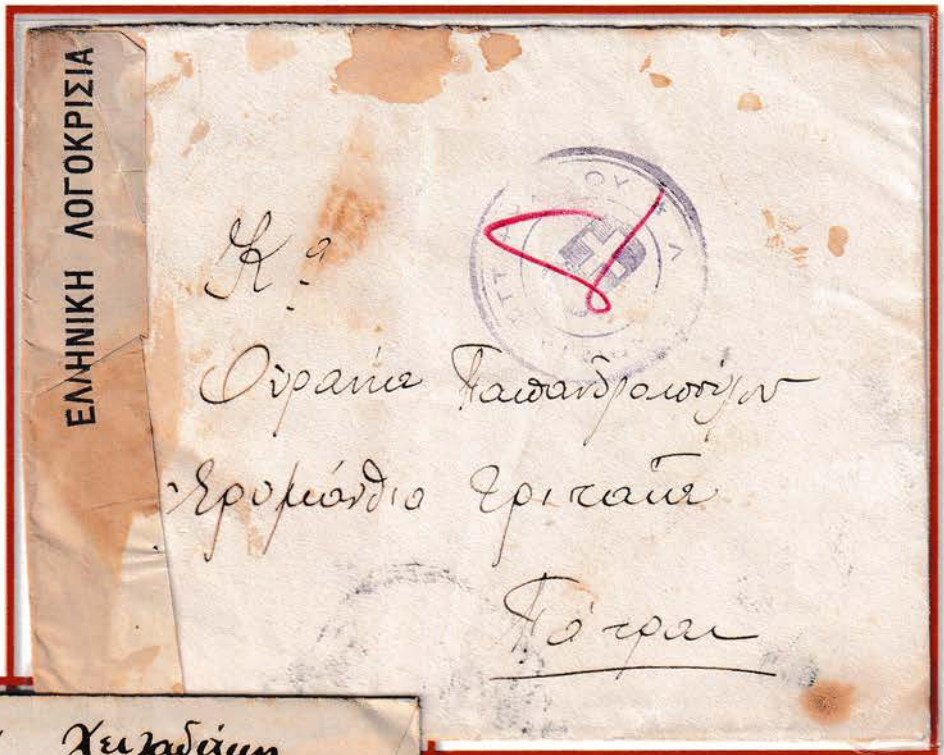 ΕΛΛΗΝΙΚΗ ΛΟΓΟΚΡΙΣΙΑ
Κα
Ουρανία Παπανδροπούλου
Ερυμάνθια Τριταία
Πάτραι
Χειλαδάκη